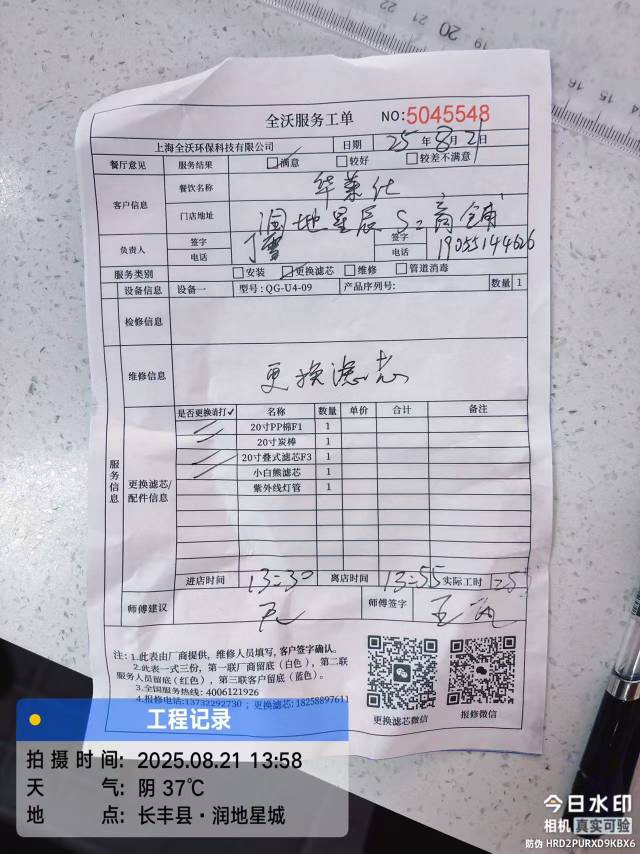 全沃服务工单 NO:5045548
上海全沃环保科技有限公司 日期 25年8月21日
餐厅意见 服务结果 满意 较好 较差不满意
客户信息 餐饮名称 华莱仕
门店地址 润地星辰 S2商铺
负责人 签字 签字
电话 电话 19055144626
服务类别 安装 更换滤芯 维修 管道消毒
设备信息 设备一 型号:QG-U4-09 产品序列号: 数量 1
检修信息
维修信息 更换滤芯
服务信息
更换滤芯/配件信息
是否更换请打✓ 名称 数量 单价 合计 备注
20寸PP棉F1 1
20寸炭棒 1
20寸叠式滤芯F3 1
小白熊滤芯 1
紫外线灯管 1
进店时间 13:30 离店时间 13:55 实际工时 25
师傅建议 无 师傅签字
注:1.此表由厂商提供,维修人员填写,客户签字确认。
2.此表一式三份,第一联厂商留底(白色),第二联
服务人员留底(红色),第三联客户留底(蓝色)。
3.全国服务热线:4006121926
4.报修电话:13732292730;更换滤芯:18258897611
更换滤芯微信 报修微信
工程记录
拍摄时间:2025.08.21 13:58
天气:阴 37℃
地点:长丰县·润地星城
今日水印
相机 真实可验
防伪 HRD2PURXD9KBX6
20
19
17
16
15